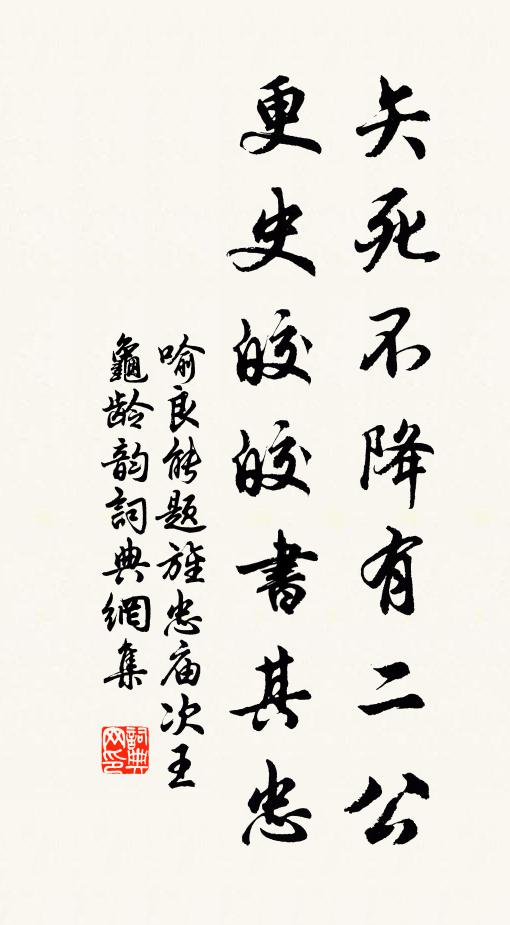 矢死不降有二公
更史皎皎書其忠
喻良能题旌忠庙次王
龜龄韵詞典網集
詞典网印